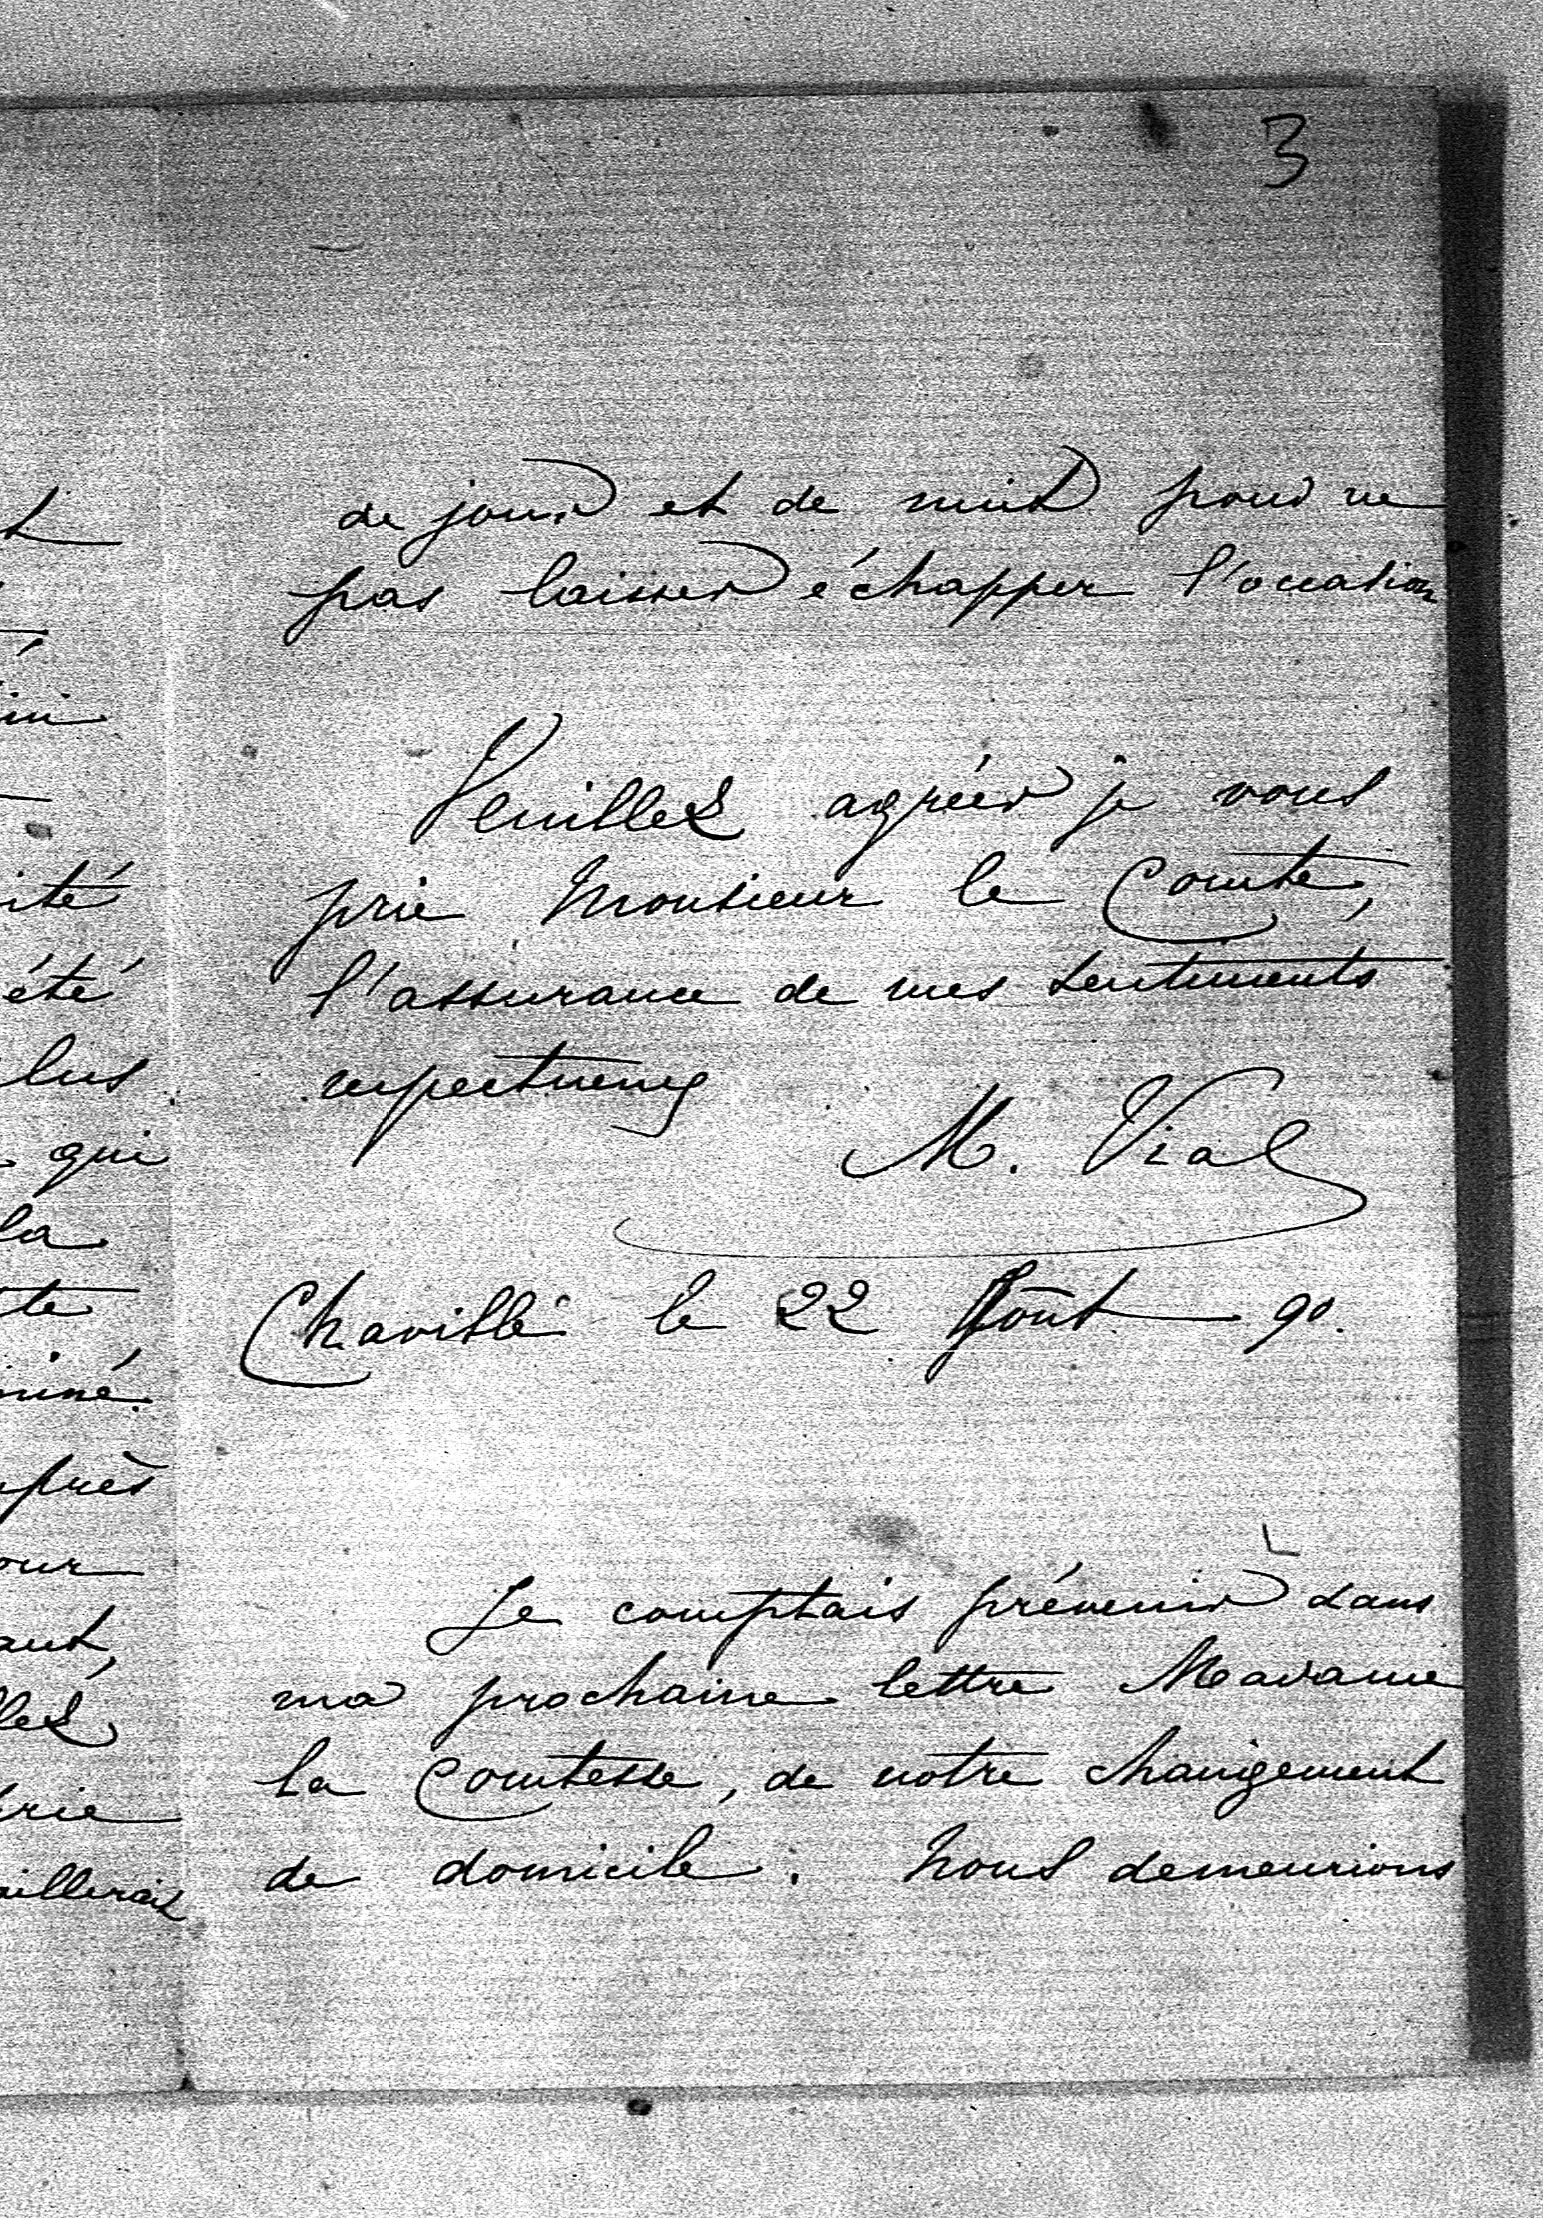 3
de jour et de nuit pour ne
pas laisser échapper l'occasion
Veuillez agréer je vous
prie Monsieur le Comte,
l'assurance de mes sentiments
respectueux
M. Vial
Chaville le 22 Août 90.
Je comptais prévenir dans
ma prochaine lettre Madame
la Comtesse, de notre changement
de domicile. Nous demeurions
été
qui
la